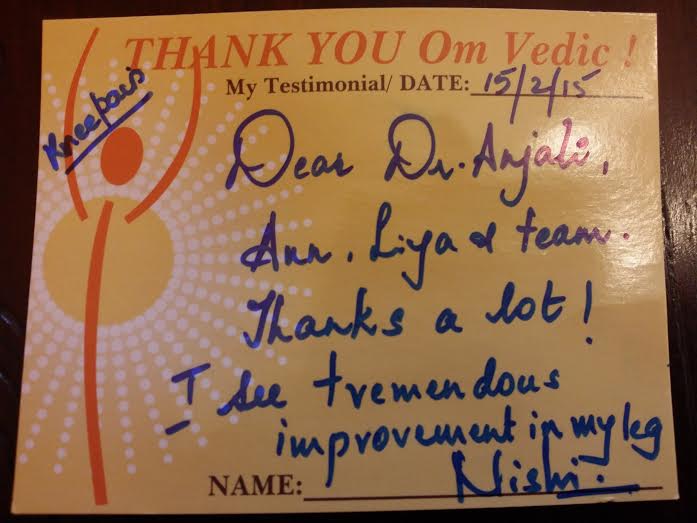 THANK YOU Om Vedic !
My Testimonial/ DATE: 15/2/15
Kneepain
Dear Dr. Anjali,
Ann, Liya & team.
Thanks a lot!
I see tremendous
improvement in my leg
NAME: Nishi.